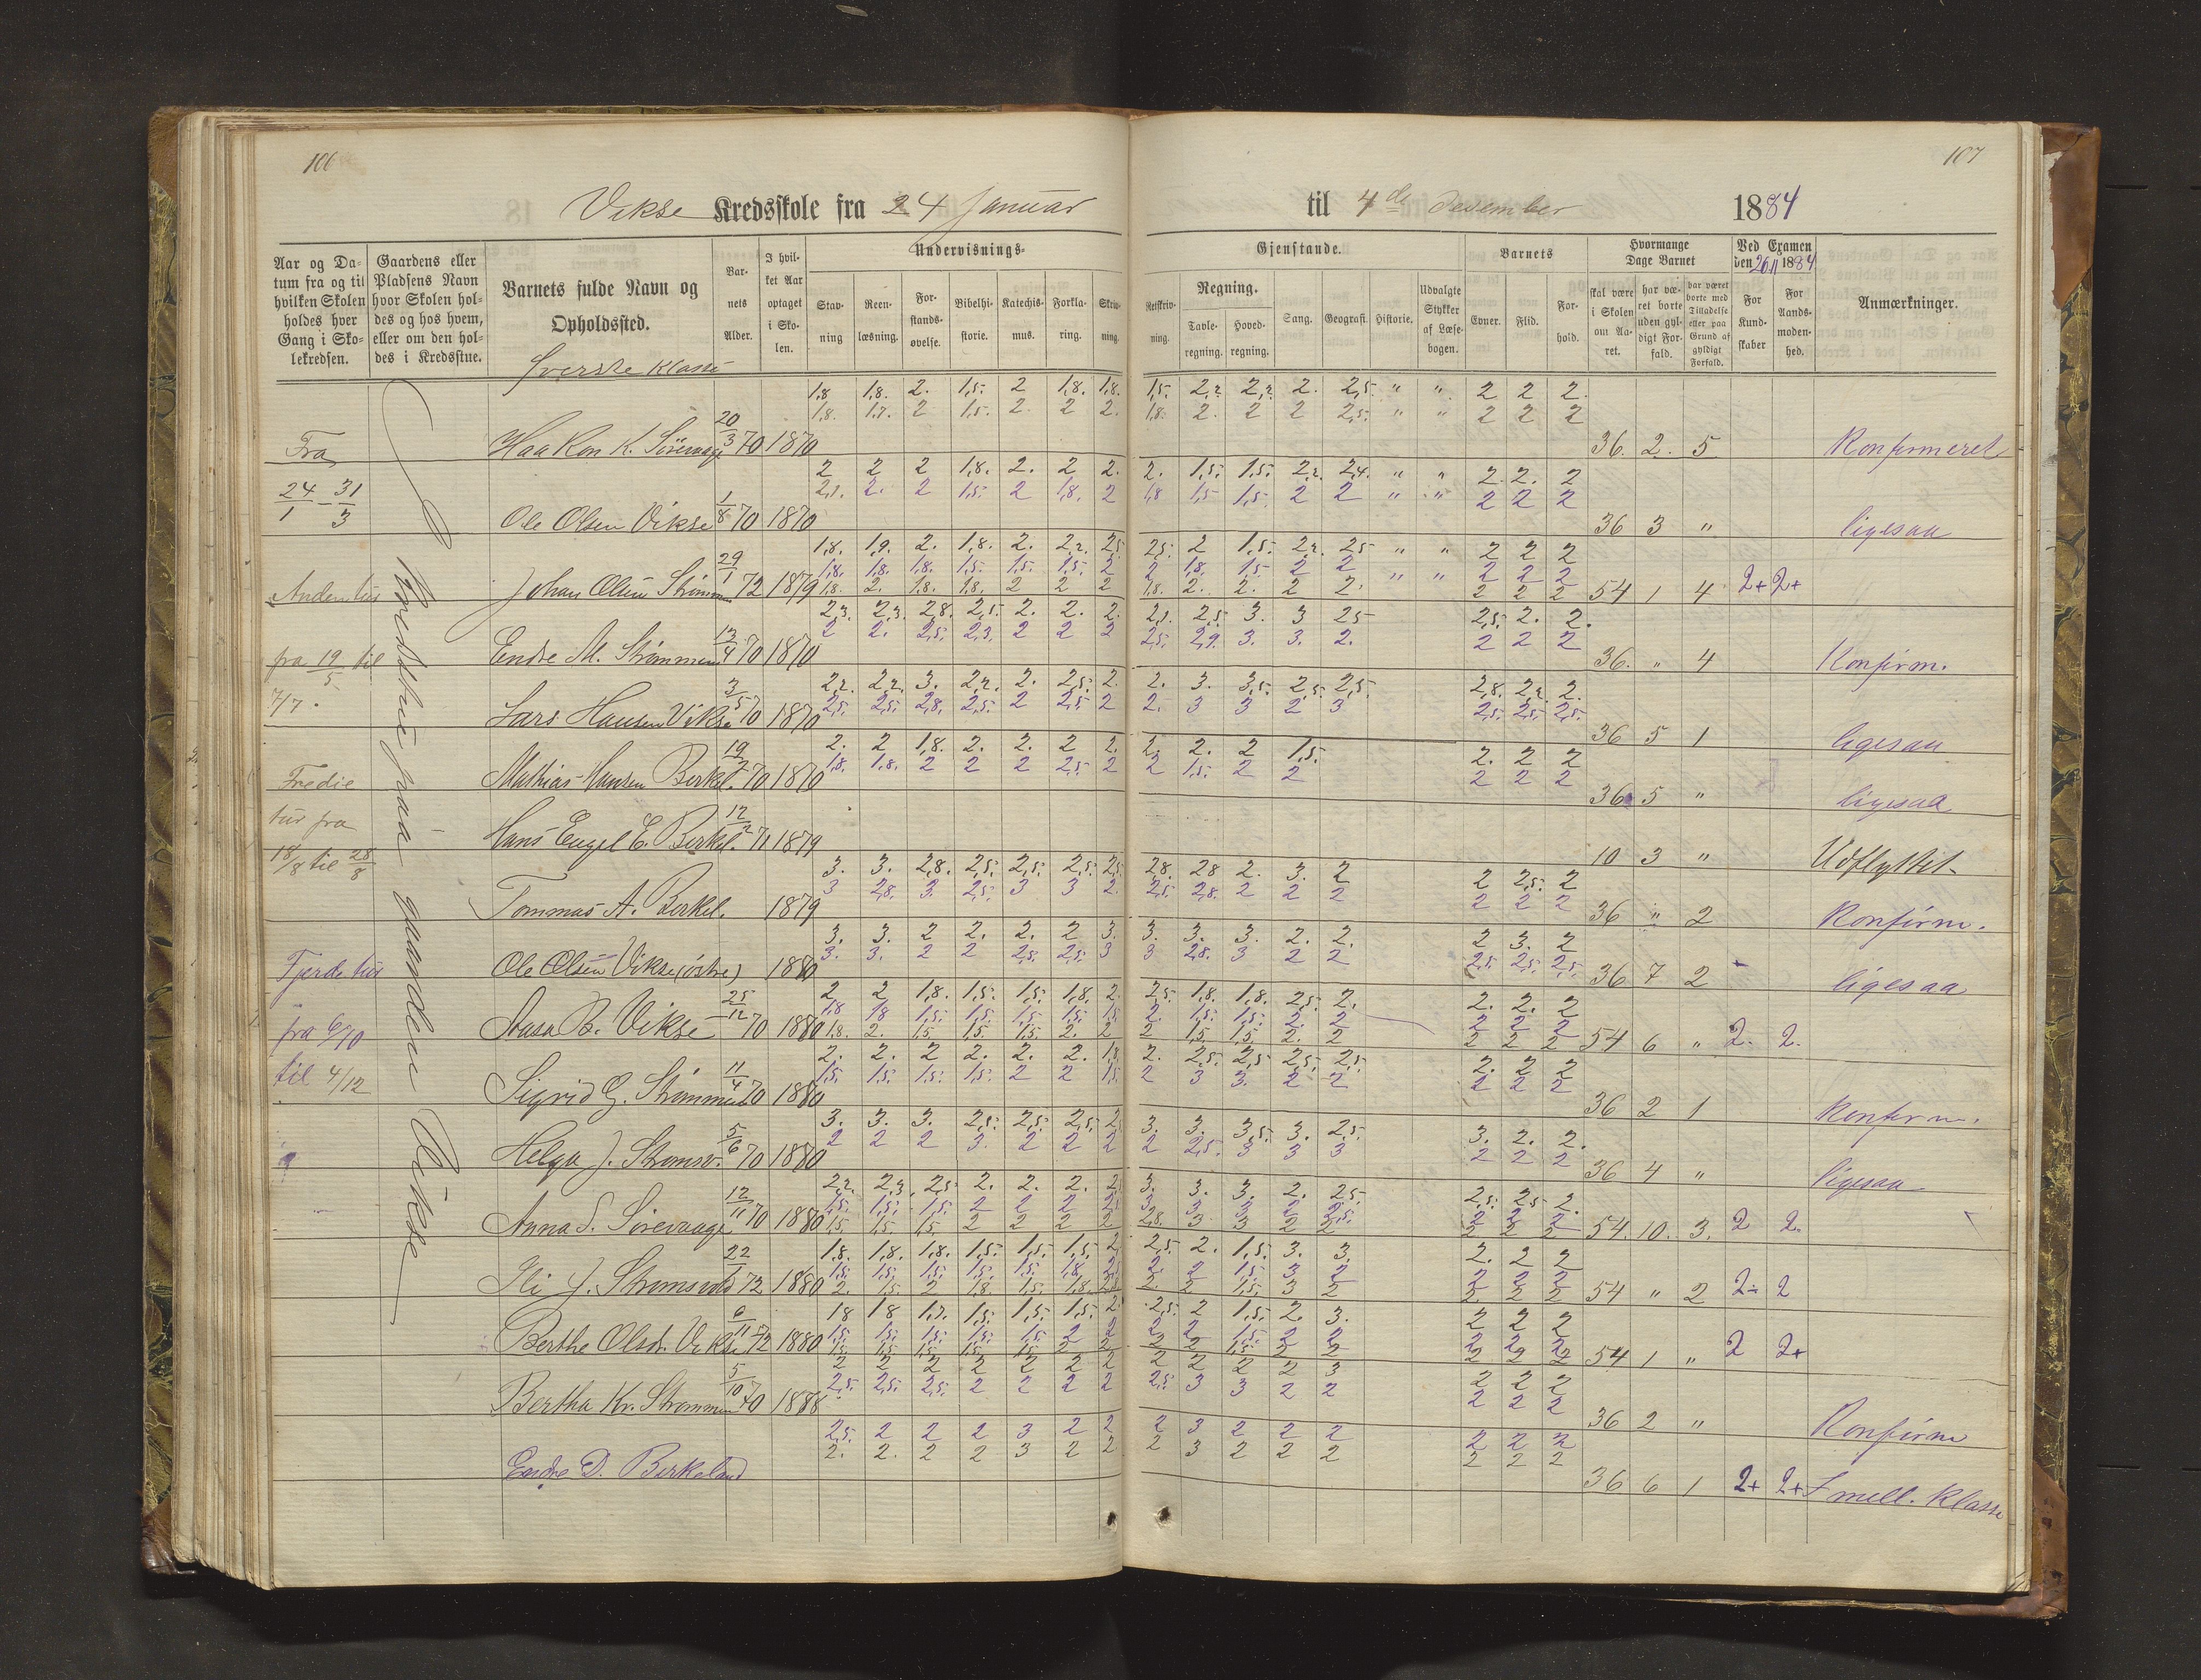 106
Vikse Kredsskole fra 24 Januar
Aar og Datum fra og til hvilken Skolen holdes hver Gang i Skolekredsen.
Gaardens eller Pladsens Navn hvor Skolen holdes og hos hvem, eller om den holdes i Kredsstue.
Barnets fulde Navn og Opholdssted.
Barnets Alder.
I hvilket Aar optaget i Skolen.
Undervisnings-
Stavning
Reenlæsning.
Forstandsøvelse.
Bibelhistorie.
Katechismus.
Forklaring.
Skrivning.
Øverste Klasse
1,8 1,8. 2. 1,5. 2 1,8. 1,8.
1,8. 1,7. 2 1,5. 2. 2 2.
Fra Haakon K. Sörevaage 20/3 70 1870
2 2 2 1,8. 2. 2 2.
2,1. 2. 2 1,5. 2 1,8. 2
24/1 - 31/3 Ole Olsen Vikse 1/8 70 1870
1,8. 1,9. 2. 1,8. 2. 2,2. 2,5
1,8. 1,8. 1,8. 1,5. 1,5. 1,5. 2
Anden tur Johan Olsen Strømmen 29/1 72 1879 1,8. 2. 1,8. 1,8. 2 2 2
2,3. 2,3. 2,8. 2,5. 2. 2. 2.
2 2. 2,5. 2,3. 2 2 2
fra 19/5 til Endre M. Strømmen 13/4 70 1870
2,2. 2,2. 3. 2,2. 2. 2,5. 2.
7/7. Lars Hansen Vikse 3/5 70 1870 2,5. 2,5. 2,8. 2,5. 2 2,5 2
2. 2 1,8. 2. 2. 2 2.
Tredie Mathias Hansen Birkel. 19/2 70 1870 1,8. 1,8. 2 2 2 2,5 2
tur fra Hans Engel E. Birkel. 12/2 71 1879
18/8 til 28/8 3. 3. 2,8. 2,5. 2,5. 2,5. 2,5.
3 2,8. 3. 2,5. 3 3 2.
Tommas A. Birkel. 1879
3. 3. 2 2. 2. 2 3.
Fjerde tur Ole Olsen Vikse (östre) 1880 3. 3. 2 2 2,5. 2,5. 3
2 2 1,8. 1,5. 1,5. 1,8. 2.
1,8 1,8 1,5. 1,5. 1,5. 1,5. 1,5
fra 6/10 Aasa B. Vikse 25/12 70 1880 1,8. 2. 1,5 1,5. 1,5 2. 2
2. 2. 2 2. 2. 2. 1,8.
1,5. 1,5. 1,5. 1,5. 2 2 1,5.
til 4/12 Sigrid G. Strømmen 11/4 70 1880
3. 3. 3. 2,5. 2,5. 2,5. 2
2 2 2 3. 2 2 2
Helga J. Strømsv. 5/6 70 1880
2,2. 2,3. 2,5 2. 2. 2. 2
1,5. 1,5. 1,5. 2 2 2 2
Anna S. Sörevaage 12/11 70 1880 1,5 1,5 1,5 2 2 2 2
1,8. 1,8. 1,8. 1,5. 1,5. 1,5. 2
1,5. 1,5. 1,5. 1,5. 1,5. 1,8
Ili J. Strømsvold 22/1 72 1880 2. 1,5. 2 1,8. 1,5. 1,8.
1,8 1,8 1,7. 1,5. 1,5. 1,5. 2
Berthe Olsdr. Vikse 6/11 72 1880 1,5. 1,5. 1,5. 1,5. 1,5. 2 2
2 2 2 2 2 2 2
2,5. 2,5. 2,5. 2 2 2 2
Bertha Kr. Strømmen 5/10 70 1888
2,5. 2 2 2 3 2 2
2. 2. 2 2 3 2 2
Endre D. Birkeland
Kredsstue paa gaarden Vikse
107
til 4de Desember 1884
Gjenstande.
Retskrivning.
Regning.
Tavleregning.
Hovedregning.
Sang.
Geografi.
Historie.
Udvalgte Stykker af Læsebogen.
Barnets
Evner.
Flid.
Forhold.
Hvormange Dage Barnet
skal være i Skolen om Aaret.
har været borte uden gyldigt Forfald.
har været borte med Tilladelse eller paa Grund af gyldigt Forfald.
Ved Examen den 26/11 1884
For Kundskaber
For Aandsmodenhed.
Anmærkninger.
1,5. 2,2 2,2. 2. 2,5. " " 2 2 2.
1,8. 2. 2 2 2,5. " " 2 2 2
36. 2. 5. Konfirmeret
2. 1,5. 1,5. 2,2. 2,4. " " 2. 2. 2
1,8 1,5 1,5. 2 2 " " 2 2 2
36 3 " ligesaa
2,5. 2 1,5. 2,2. 2,5 " " 2 2 2
2 1,8. 1,5. 2 2 2 2 2
1,8. 2. 2. 2 2. " " 2 2 2 54 1 4 2+ 2+
2,1. 2,5. 3. 3 2,5 2,5. 2. 2.
2,5. 2,9. 3. 3. 2. 2 2 2
36. " 4 Konfirm.
2. 3. 3,5. 2,5. 2,5. 2,8. 2,2. 2.
2. 3 3 2 3 2,5. 2,5. 2,5.
36 5 1 ligesaa
2. 2. 2 1,5. 2. 2 2
2 1,5. 2 2 2 2 2
36 5 " ligesaa
10 3 " Udflyttet.
2,8. 2,8 2. 3. 2 2 2,5. 2
2,5. 2,8. 2 2 2 2 2 2
36 " 2 Konfirm.
3. 3. 3. 2. 2. 2 3. 2
3 2,8. 3 2 2 2,5. 2,5. 2,5. 36 7 2 ligesaa
2,5 1,8. 1,8. 2,5. 2. 2. 2. 2
2. 1,5. 1,5. 2. 2 2 2 2
2 1,5. 1,5. 2. 2 2 2 2 54 6 " 2. 2.
2. 2,5. 2,5 2,5. 2,5. 2. 2 2
2 3 3. 2 2 2 2 2
36 2 1 Konfirm.
3. 3. 3,5. 3. 2,5. 3. 2. 2.
2 2,5. 3 3 3 2 2 2
36 4 " ligesaa
3. 3. 3. 2. 2,5. 2,5. 2,5 2.
3 3 3 2 2,5. 2 2 2
2,8. 3 3 2 2 2 2 2 54. 10. 3. 2 2.
2,5. 2. 1,5. 3. 3. 2. 2 2
2. 2 1,5. 3 2 2 2 2
2. 2 1,5. 3 2 2 2 2 54 " 2 2- 2
2,5. 2 1,5. 2. 3. 2 2 2
2 2 1,5. 2 2 2 2 2
2 2 1,5. 2 2 2 2 2 54 1 " 2 2+
2 2 2 2 3 2 2 2
2,5. 3 3 2 2 2 2 2
36 2 " Konfirm
2 3 2 2 2 2 2 2
2 3 2 2 2 2 2 2
36 6 1 2+ 2+ I mell. Klasse